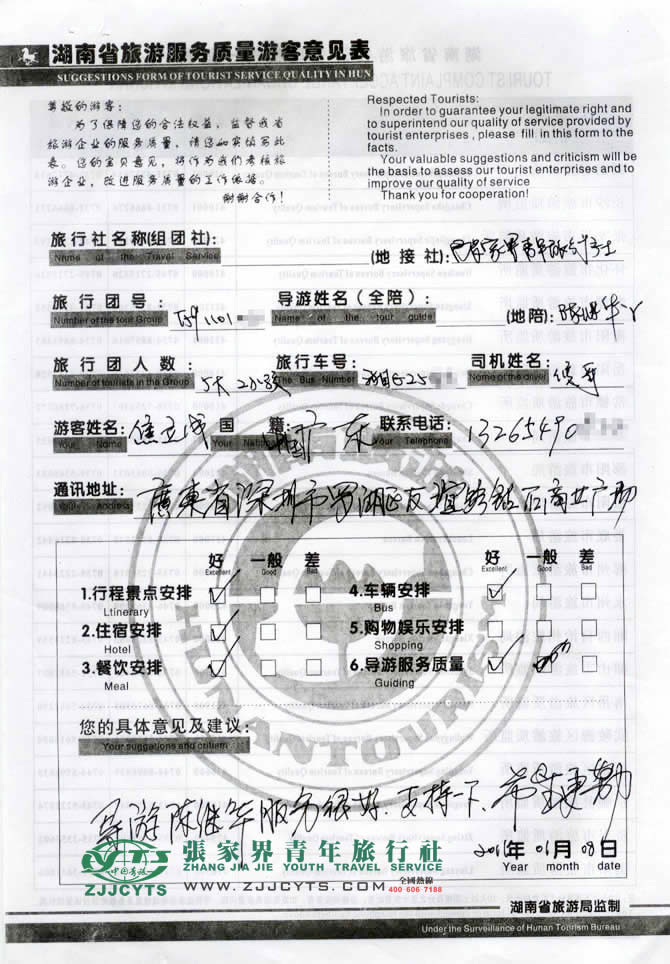 湖南省旅游服务质量游客意见表
SUGGESTIONS FORM OF TOURIST SERVICE QUALITY IN HUN
尊敬的游客:
为了保障您的合法权益,监督我省
旅游企业的服务质量,请您如实填写此
表。您的宝贝意见,将作为我们考核旅
游企业,改进服务质量的工作依据。
谢谢合作!
Respected Tourists:
In order to guarantee your legitimate right and
to superintend our quality of service provided by
tourist enterprises , please fill in this form to the
facts.
Your valuable suggestions and criticism will be
the basis to assess our tourist enterprises and to
improve our quality of service
Thank you for cooperation!
旅行社名称(组团社):
Name of the Travel Service
(地接社):
旅行团号:
Number of the tour Group
导游姓名(全陪):
Name of the tour guide
(地陪):
旅行团人数:
Number of tourists in the Group
5大2小孩
旅行车号:
The Bus Number
湘G25
司机姓名:
Name of the driver
游客姓名:
Your Name
国籍:
广东
联系电话:
Your Telephone
13265490
通讯地址:
Address
廣東省深圳市罗湖区友谊路钻石商业广场
好 一般 差
Excellent Good Bad
好 一般 差
Excellent Good Bad
1.行程景点安排
Ltinerary
4.车辆安排
Bus
2.住宿安排
Hotel
5.购物娱乐安排
Shopping
3.餐饮安排
Meal
6.导游服务质量
Guiding
HUNAN TOURISM
您的具体意见及建议:
Your suggations and critiem
导游陈继华服务很好.支持一下.
張家界青年旅行社
ZHANG JIA JIE YOUTH TRAVEL SERVICE
YTS
中国青旅
ZJJCYTS
WWW.ZJJCYTS.COM
全國熱線
400 606 7188
2011年 01月 08日
Year month date
湖南省旅游局监制
Under the Surveillance of Hunan Tourism Bureau